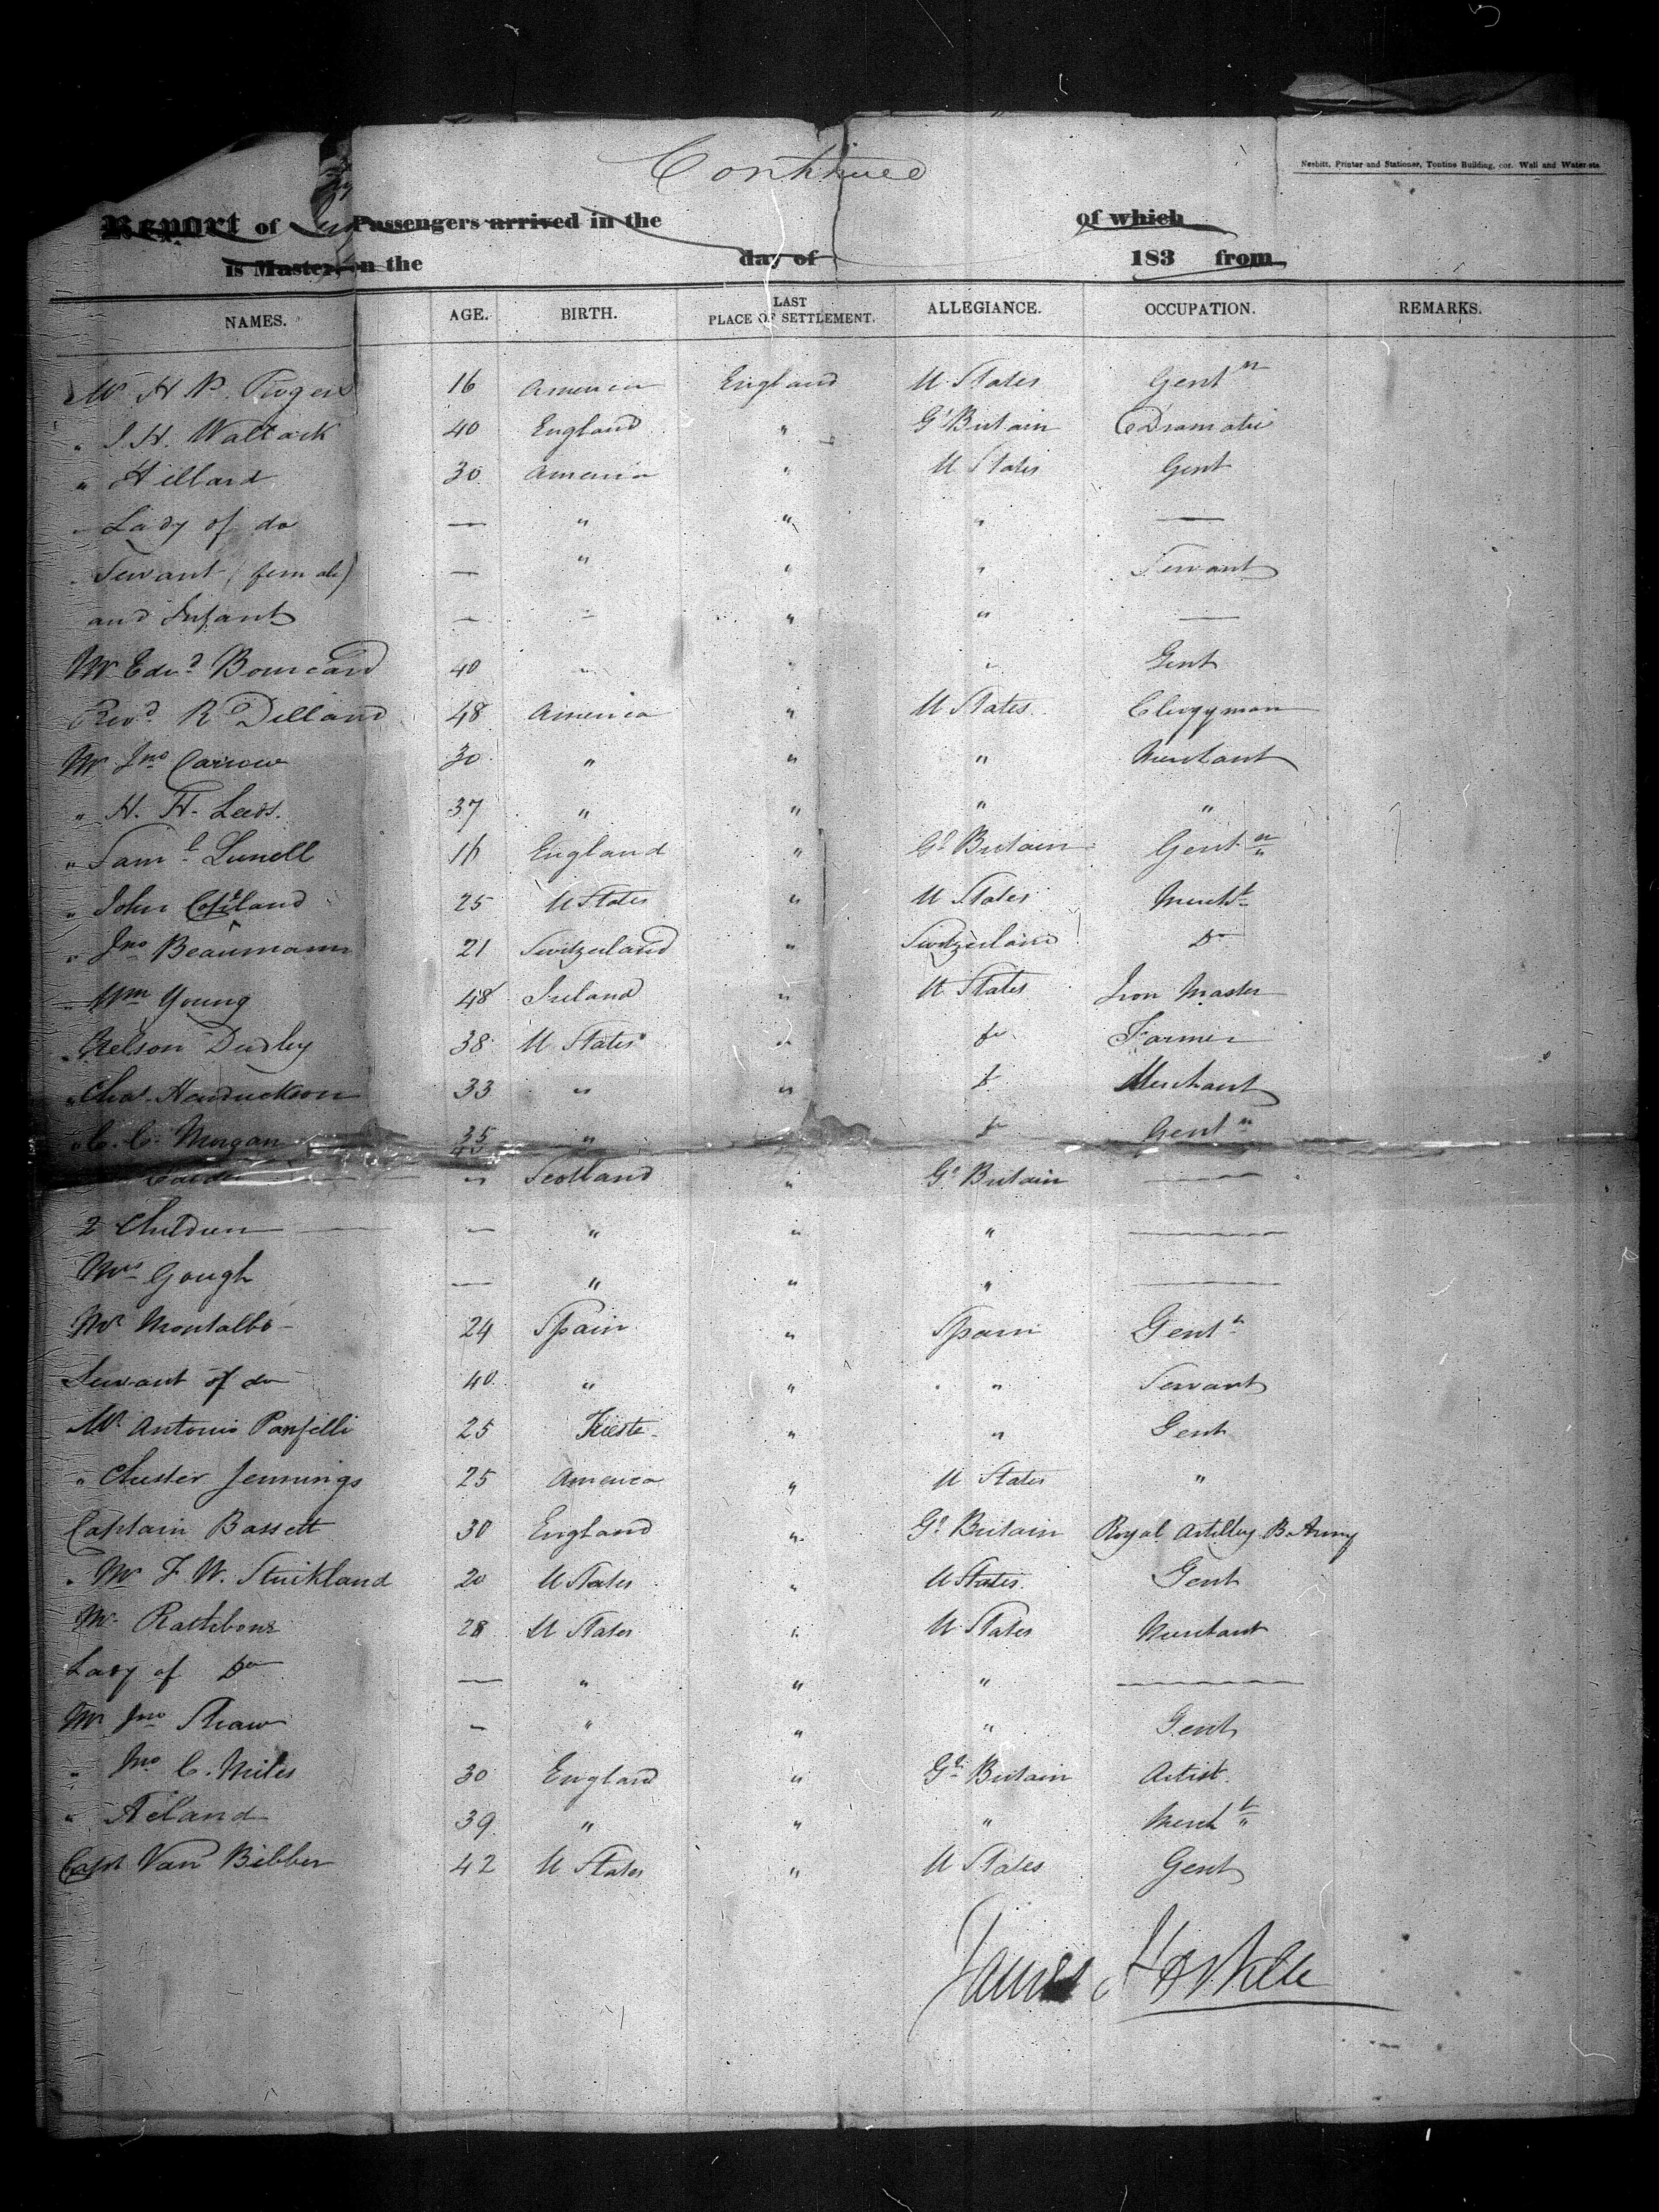 Continued
Nesbitt, Printer and Stationer, Tontine Building, cor. Wall and Water-sts.
Report of Passengers arrived in the of which
is Master, on the day of 183 from
NAMES. AGE. BIRTH. LAST PLACE OF SETTLEMENT. ALLEGIANCE. OCCUPATION. REMARKS.
Mr H N. Rogers 16 America England U States Gentn
" J. H. Wallack 40 England " Gt Britain Dramatic
" Hillard 30 America " U States Gent
Lady of do — " " " —
Servant (female) — " " " Servant
and Infant — " " " —
Mr Edwd Bourcard 40 " " " Gent
Revd R Dilland 48 America " U States Clergyman
Mr Jno Carrow 30 " " " Merchant
" H. H. Leeds. 37 " " " "
" Saml Lunell 16 England " Gt Britain Gentn
" John Copeland 25 U States " U States Mercht
" Jno Beaumann 21 Switzerland " Switzerland Do
" Wm Young 48 Ireland " U States Iron Master
" Nelson Dudley 38 U States " do Farmer
" Chas. Hendrickson 33 " " do Merchant
" C. C. Morgan 35 " do Gentn
" Scotland " Gt Britain —
2 Children — " " " —
Mrs Gough — " " " —
Mr Montalbo 24 Spain " Spain Gentn
Servant of do 40 " " " Servant
Mr Antonio Panfilli 25 Trieste " " Gent
" Chester Jennings 25 America " U States "
Captain Bassett 30 England " Gt Britain Royal Artillery B. Army
" Mr F. W. Strickland 20 U States " U States Gent
Mr Rathbone 28 U States " U States Merchant
Lady of Do — " " " —
Mr Jno Shaw — " " " Gent
" Jno C. Miles 30 England " Gt Britain Artist.
" Acland 39 " " " Mercht
Capt Van Bibber 42 U States " U States Gent
James